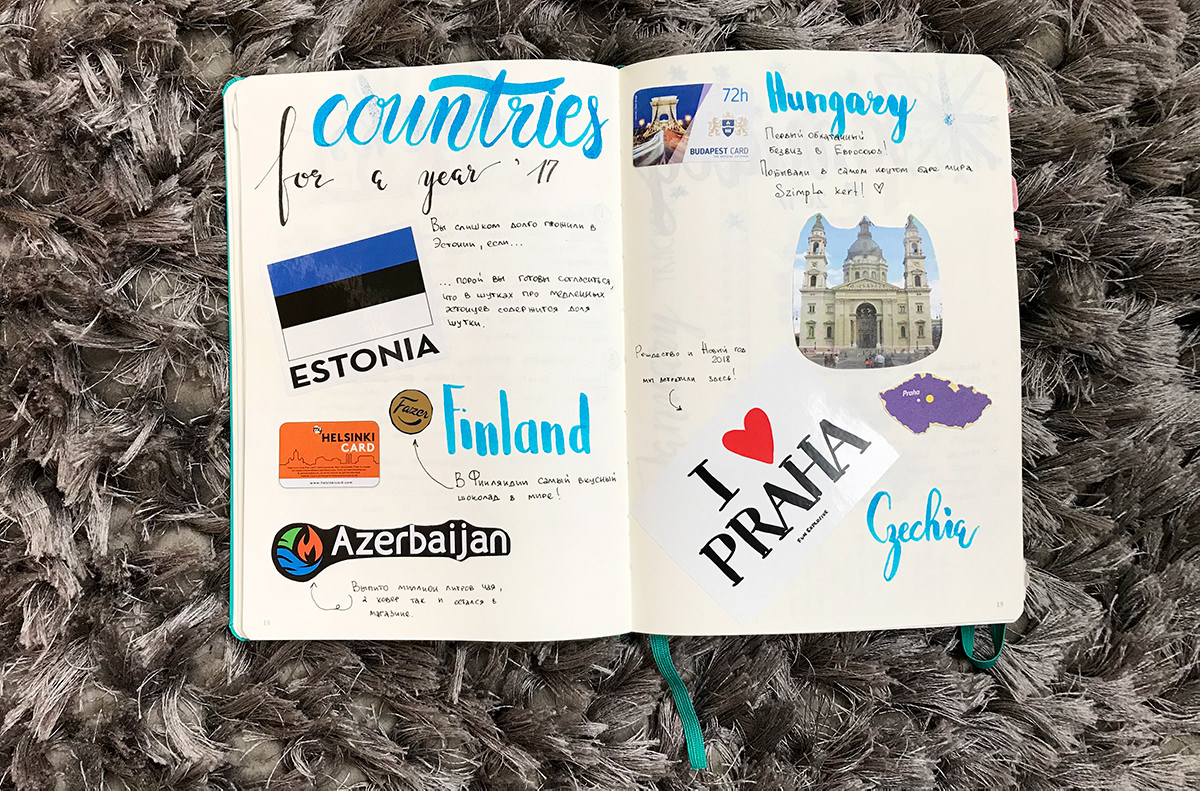 countries
for a year '17
Вы слишком долго прожили в
Эстонии, если...
... порой вы готовы согласиться,
что в шутках про медленных
эстонцев содержится доля
шутки.
ESTONIA
Fazer
Finland
my
HELSINKI
CARD
www.helsinkicard.com
В Финляндии самый вкусный
шоколад в мире!
Azerbaijan
Выпито миллион литров чая,
а ковер так и остался в
магазине.
18
72h
BUDAPEST CARD
Hungary
Первый обкатанный
безвиз в Евросоюз!
Побывали в самом крутом баре мира
Szimpla kert! ♡
Рождество и Новый год
2018
мы встречали здесь!
Praha
I ♥
PRAHA
Czechia
19